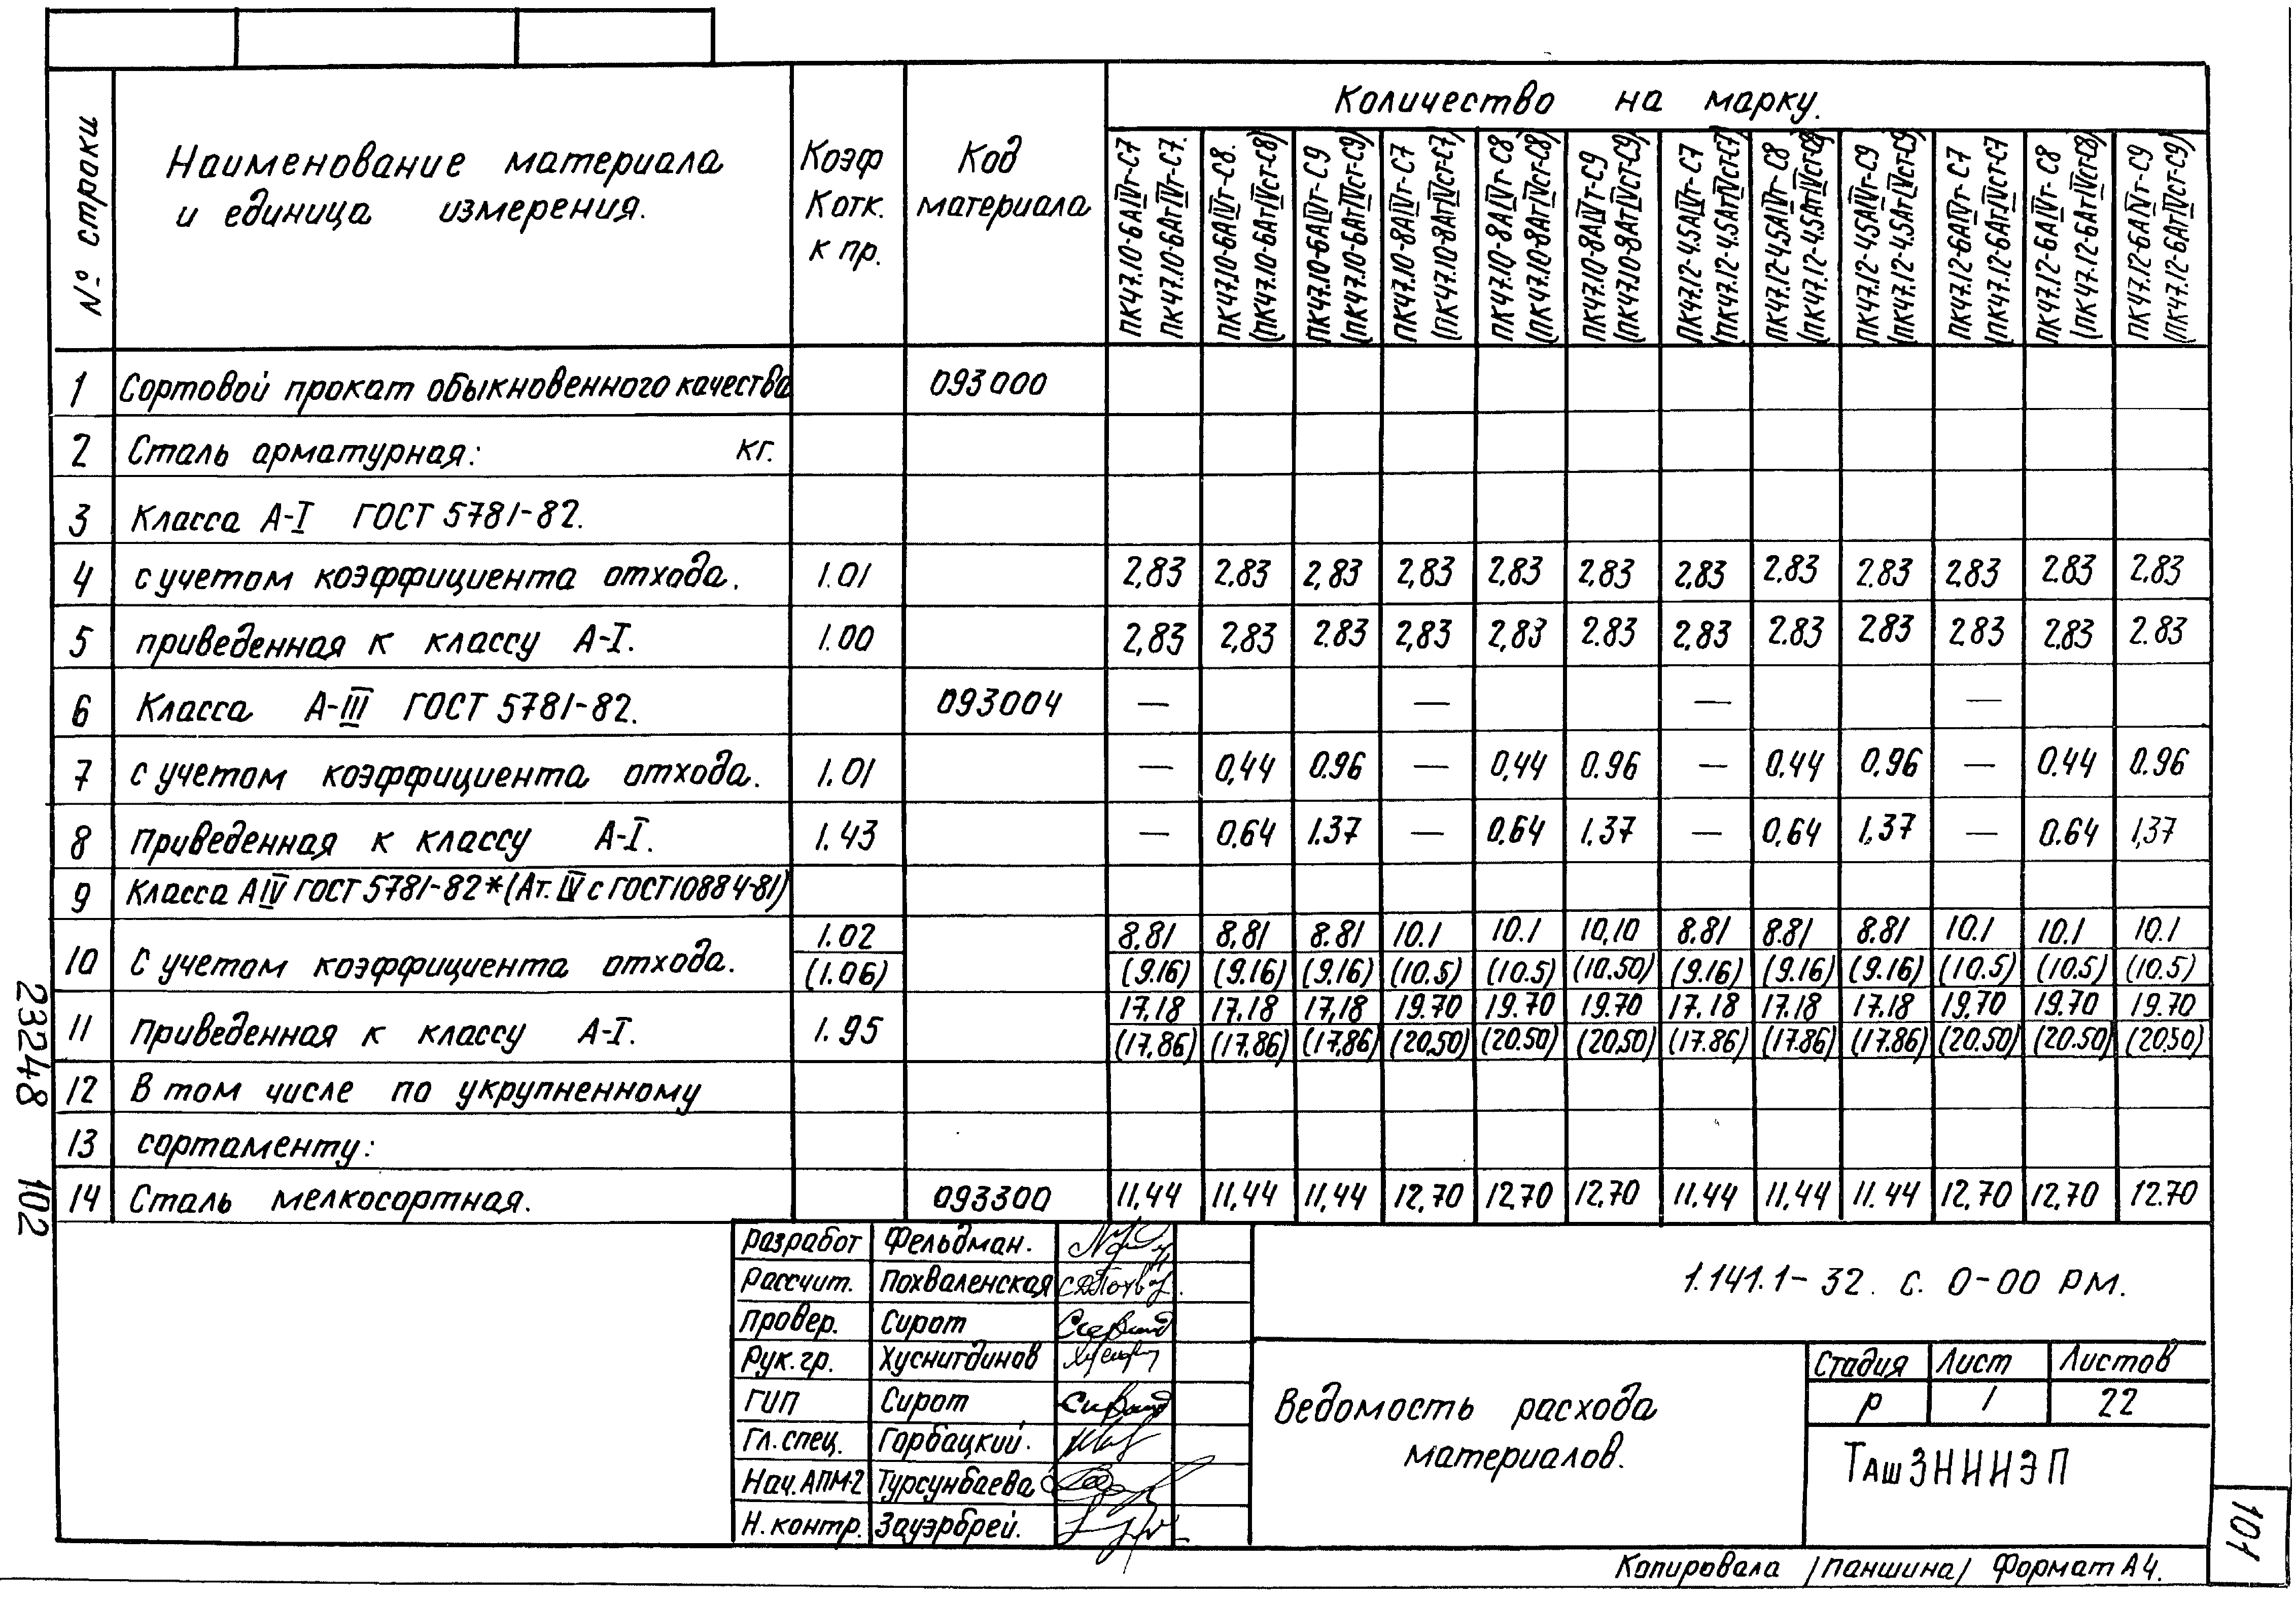 Количество на марку.
№ строки
Наименование материала и единица измерения.
Коэф Котк. к пр.
Код материала
ПК47.10-6АIVт-С7 ПК47.10-6АтIVт-С7.
ПК47.10-6АIVт-С8. (ПК47.10-6АтIVст-С8)
ПК47.10-6АIVт-С9 (ПК47.10-6АтIVст-С9)
ПК47.10-8АIVт-С7 (ПК47.10-8АтIVст-С7)
ПК47.10-8АIVт-С8 (ПК47.10-8АтIVст-С8)
ПК47.10-8АIVт-С9 (ПК47.10-8АтIVст-С9)
ПК47.12-4.5АIVт-С7 (ПК47.12-4.5АтIVст-С7)
ПК47.12-4.5АIVт-С8 (ПК47.12-4.5АтIVст-С8)
ПК47.12-4.5АIVт-С9 (ПК47.12-4.5АтIVст-С9)
ПК47.12-6АIVт-С7 (ПК47.12-6АтIVст-С7
ПК47.12-6АIVт-С8 (ПК47.12-6АтIVст-С8)
ПК47.12-6АIVт-С9 (ПК47.12-6АтIVст-С9)
1 Сортовой прокат обыкновенного качества 093000
2 Сталь арматурная: кг.
3 Класса А-I ГОСТ 5781-82.
4 с учетом коэффициента отхода. 1.01 2,83 2.83 2,83 2,83 2,83 2.83 2,83 2.83 2.83 2.83 2.83 2.83
5 приведенная к классу А-I. 1.00 2,83 2,83 2.83 2,83 2,83 2.83 2,83 2.83 2.83 2.83 2,83 2.83
6 Класса А-III ГОСТ 5781-82. 093004 — — — —
7 с учетом коэффициента отхода. 1.01 — 0,44 0.96 — 0,44 0.96 — 0.44 0,96 — 0.44 0.96
8 Приведенная к классу А-I. 1.43 — 0.64 1.37 — 0.64 1.37 — 0.64 1.37 — 0.64 1,37
9 Класса АIV ГОСТ 5781-82*(Ат.IV с ГОСТ10884-81)
10 С учетом коэффициента отхода. 1.02 8.81 8,81 8.81 10.1 10.1 10,10 8.81 8.81 8.81 10.1 10.1 10.1
(1.06) (9.16) (9.16) (9.16) (10.5) (10.5) (10.50) (9.16) (9.16) (9.16) (10.5) (10.5) (10.5)
17,18 17,18 17,18 19.70 19.70 19.70 17.18 17.18 17.18 19,70 19.70 19.70
11 Приведенная к классу А-I. 1.95 (17.86) (17,86) (17,86) (20,50) (20.50) (20,50) (17.86) (17.86) (17.86) (20.50) (20.50) (20,50)
12 В том числе по укрупненному
13 сортаменту:
14 Сталь мелкосортная. 093300 11,44 11,44 11,44 12.70 12.70 12,70 11.44 11,44 11.44 12,70 12,70 12.70
разработ Фельдман.
Рассчит. Похваленская
Провер. Сирот
Рук.гр. Хуснитдинов
ГИП Сирот
Гл.спец. Горбацкий.
Нач.АПМ-2 Турсунбаева
Н.контр. Зауэрбрей.
1.141.1-32. с. 0-00 РМ.
Ведомость расхода
материалов.
Стадия Лист Листов
Р 1 22
ТашЗНИИЭП
Копировала /Паншина/ Формат А4.
23248 102
101